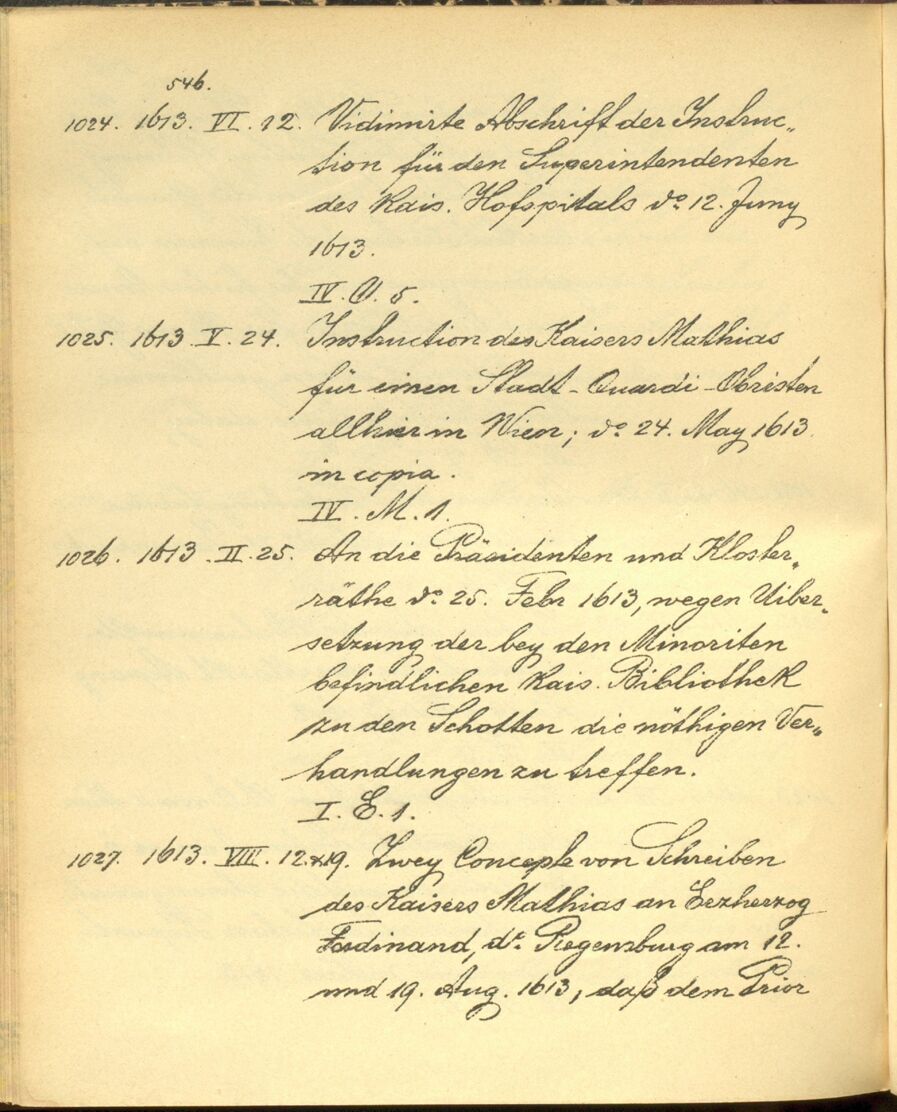 546.
1024. 1613. VI. 12. Vidimirte Abschrift der Instruc„
tion für den Superintendenten
des Kais. Hofspitals do 12. Juny
1613.
IV. O. 5.
1025. 1613. V. 24. Instruction des Kaisers Mathias
für einen Stadt-Quardi-Obristen
allhier in Wien; do 24. May 1613.
in copia.
IV. M. 1.
1026. 1613. II. 25. An die Präsidenten und Kloster„
räthe do 25. Febr 1613, wegen Uiber„
setzung der bey den Minoriten
befindlichen Kais. Bibliothek
zu den Schotten die nöthigen Ver„
handlungen zu treffen.
I. E. 1.
1027. 1613. VIII. 12 & 19. Zwey Concepte von Schreiben
des Kaisers Mathias an Erzherzog
Ferdinand, do Regensburg am 12.
und 19. Aug. 1613, daß dem Prior